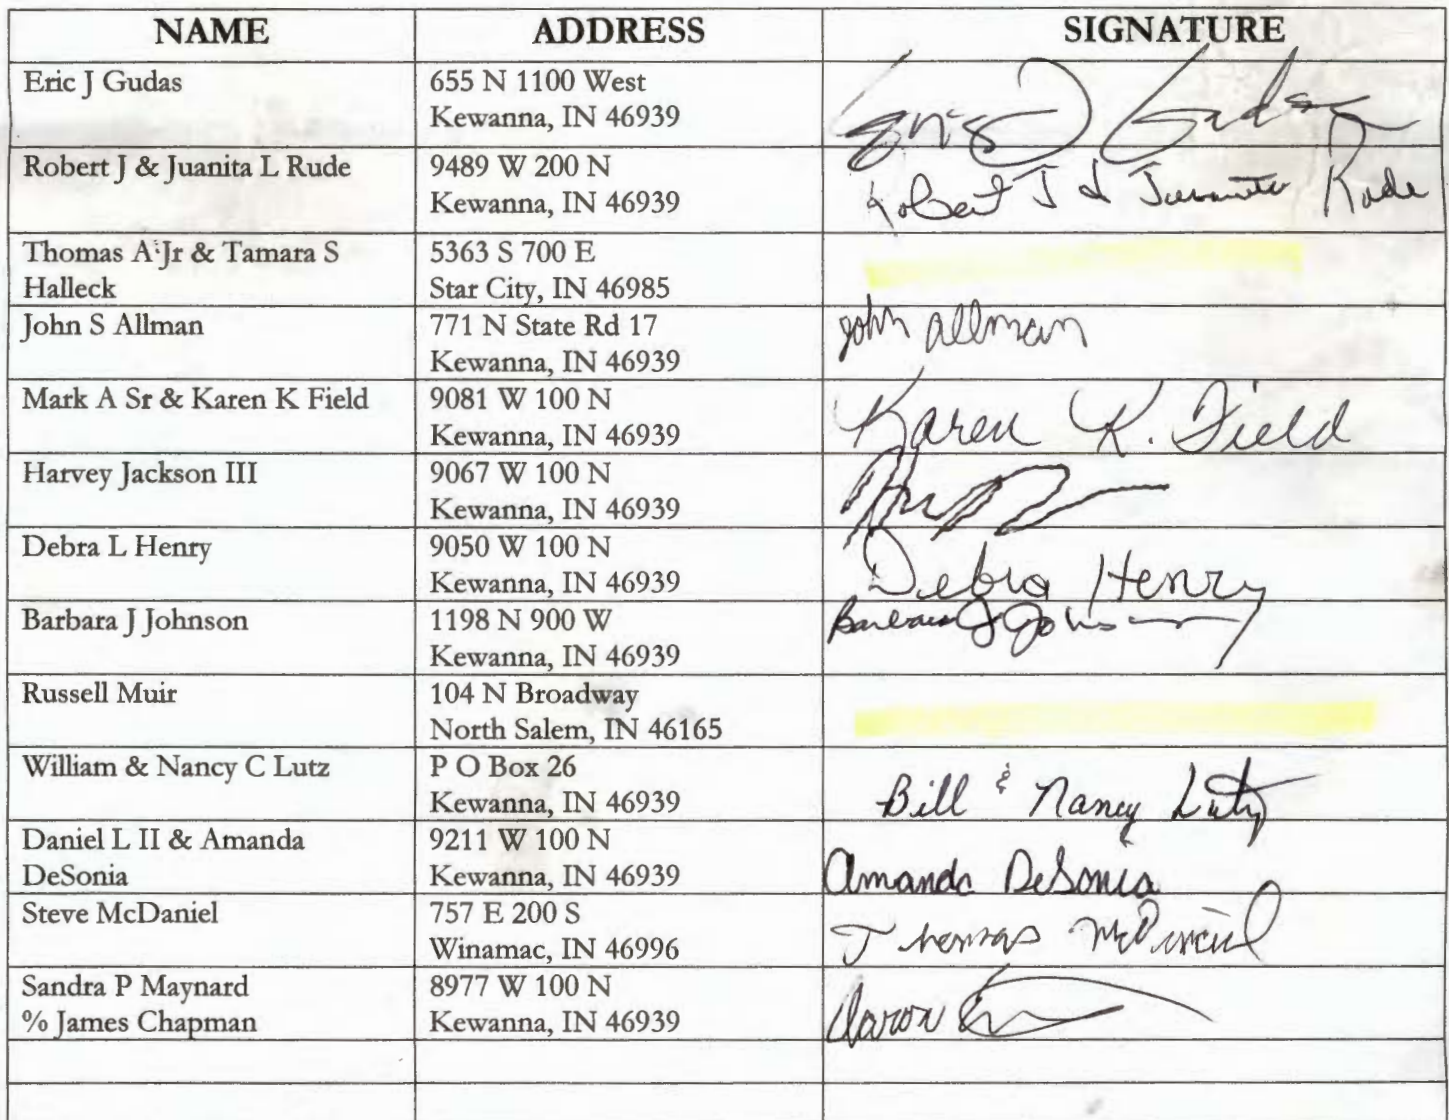 NAME ADDRESS SIGNATURE
Eric J Gudas 655 N 1100 West
Kewanna, IN 46939 Eric J Gudas
Robert J & Juanita L Rude 9489 W 200 N
Kewanna, IN 46939 Robert J & Juanita Rude
Thomas A Jr & Tamara S 5363 S 700 E
Halleck Star City, IN 46985
John S Allman 771 N State Rd 17 John Allman
Kewanna, IN 46939
Mark A Sr & Karen K Field 9081 W 100 N
Kewanna, IN 46939 Karen K. Field
Harvey Jackson III 9067 W 100 N
Kewanna, IN 46939
Debra L Henry 9050 W 100 N
Kewanna, IN 46939 Debra Henry
Barbara J Johnson 1198 N 900 W Barbara J Johnson
Kewanna, IN 46939
Russell Muir 104 N Broadway
North Salem, IN 46165
William & Nancy C Lutz P O Box 26
Kewanna, IN 46939 Bill & Nancy Lutz
Daniel L II & Amanda 9211 W 100 N
DeSonia Kewanna, IN 46939 Amanda DeSonia
Steve McDaniel 757 E 200 S
Winamac, IN 46996 Thomas McDaniel
Sandra P Maynard 8977 W 100 N
% James Chapman Kewanna, IN 46939 Aaron